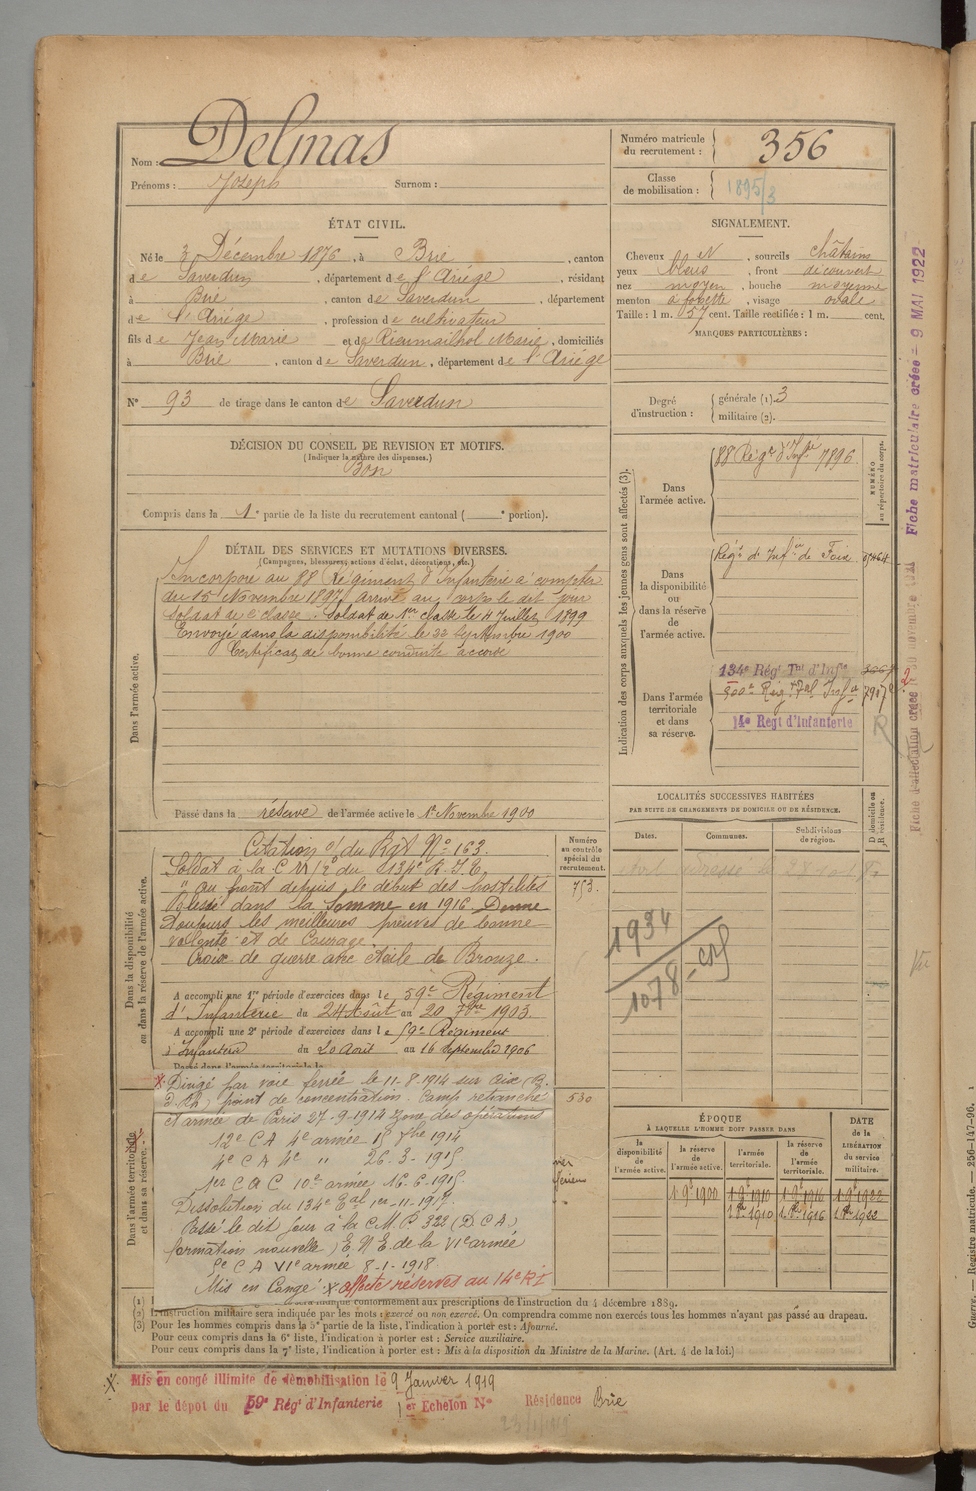 Nom : Delmas
Prénoms : Joseph Surnom :
Numéro matricule du recrutement : 356
Classe de mobilisation : 1895/3
ÉTAT CIVIL.
Né le 3 Décembre 1876, à Brie, canton
de Saverdun, département de l'Ariège, résidant
à Brie, canton de Saverdun, département
de l'Ariège, profession de cultivateur
fils de Jean Marie et de Rieumailhol Marie, domiciliés
à Brie, canton de Saverdun, département de l'Ariège
N° 93 de tirage dans le canton de Saverdun
SIGNALEMENT.
Cheveux N, sourcils châtains
yeux bleus, front découvert
nez moyen, bouche moyenne
menton à fossette, visage ovale
Taille : 1 m. 57 cent. Taille rectifiée : 1 m. cent.
MARQUES PARTICULIÈRES :
Degré d'instruction : générale (1). 3
militaire (2).
DÉCISION DU CONSEIL DE REVISION ET MOTIFS.
(Indiquer la nature des dispenses.)
Bon
Compris dans la 1e partie de la liste du recrutement cantonal ( e portion).
DÉTAIL DES SERVICES ET MUTATIONS DIVERSES.
(Campagnes, blessures, actions d'éclat, décorations, etc.)
Dans l'armée active.
Incorporé au 88 Régiment d'Infanterie à compter
du 15 Novembre 1897 arrivé au corps le dit jour
soldat de 2e classe. Soldat de 1re classe le 4 Juillet 1899
Envoyé dans la disponibilité le 22 Septembre 1900
Certificat de bonne conduite accordé
Passé dans la réserve de l'armée active le 1er Novembre 1900
Indication des corps auxquels les jeunes gens sont affectés (3).
NUMÉRO au répertoire du corps.
Dans l'armée active.
88 Régt d'Infie 7896
Dans la disponibilité ou dans la réserve de l'armée active.
Régt d'Infie de Foix
Dans l'armée territoriale et dans sa réserve.
134e Régt Tal d'Infie
14e Regt d'Infanterie
R
Fiche matriculaire créée = 9 MAI 1922
LOCALITÉS SUCCESSIVES HABITÉES
PAR SUITE DE CHANGEMENTS DE DOMICILE OU DE RÉSIDENCE.
Dates. Communes. Subdivisions de région. D domicile ou R résidence.
1934
1078
Dans la disponibilité ou dans la réserve de l'armée active.
Numéro au contrôle spécial du recrutement.
753.
Citation o/ du Rgt N° 163.
Soldat à la C M/2 du 134e R.I.T.
" au front depuis le début des hostilités
Blessé dans la Somme en 1916 Donne
Toujours les meilleures preuves de bonne
volonté et de Courage.
Croix de guerre avec étoile de Bronze.
A accompli une 1re période d'exercices dans le 59e Régiment
d'Infanterie du 24 Août au 20 7bre 1903.
A accompli une 2e période d'exercices dans le 59e Régiment
d'Infanterie du 20 Août au 16 Septembre 1906
Dans l'armée territoriale et dans sa réserve.
530
Dirigé par voie ferrée le 11-8-1914 sur Aix (B.
D.R.) point de concentration. Camp retranché
et armée de Paris 27-9-1914 Zone des opérations
12e C A 4e armée 15 1914
4e C A 4e " 26-3-1915
1er C A C 10e armée 16-6-1915.
Dissolution du 134e Tal 1er-11-1917
Passé le dit jour à la C.M.P. 322 (D.C.A)
formation nouvelle) E.N.E. de la VIe armée
5e C A VIe armée 8-1-1918.
Mis en Congé affecté réserves au 14e R.I
ÉPOQUE
À LAQUELLE L'HOMME DOIT PASSER DANS
la disponibilité de l'armée active. la réserve de l'armée active. l'armée territoriale. la réserve de l'armée territoriale. DATE de la LIBÉRATION du service militaire.
1 9e 1900 1 9e 1910 1 9e 1916 1 9e 1922
1 8e 1910 1 8e 1916 1 8e 1922
conformément aux prescriptions de l'instruction du 4 décembre 1889.
(2) L'instruction militaire sera indiquée par les mots : exercé ou non exercé. On comprendra comme non exercés tous les hommes n'ayant pas passé au drapeau.
(3) Pour les hommes compris dans la 5e partie de la liste, l'indication à porter est : Ajourné.
Pour ceux compris dans la 6e liste, l'indication à porter est : Service auxiliaire.
Pour ceux compris dans la 7e liste, l'indication à porter est : Mis à la disposition du Ministre de la Marine. (Art. 4 de la loi.)
Mis en congé illimité de démobilisation le 9 Janvier 1919
par le dépôt du 59e Régt d'Infanterie 1er Echelon N° Résidence Brie
Guerre. — Registre matricule. — 256-147-96.